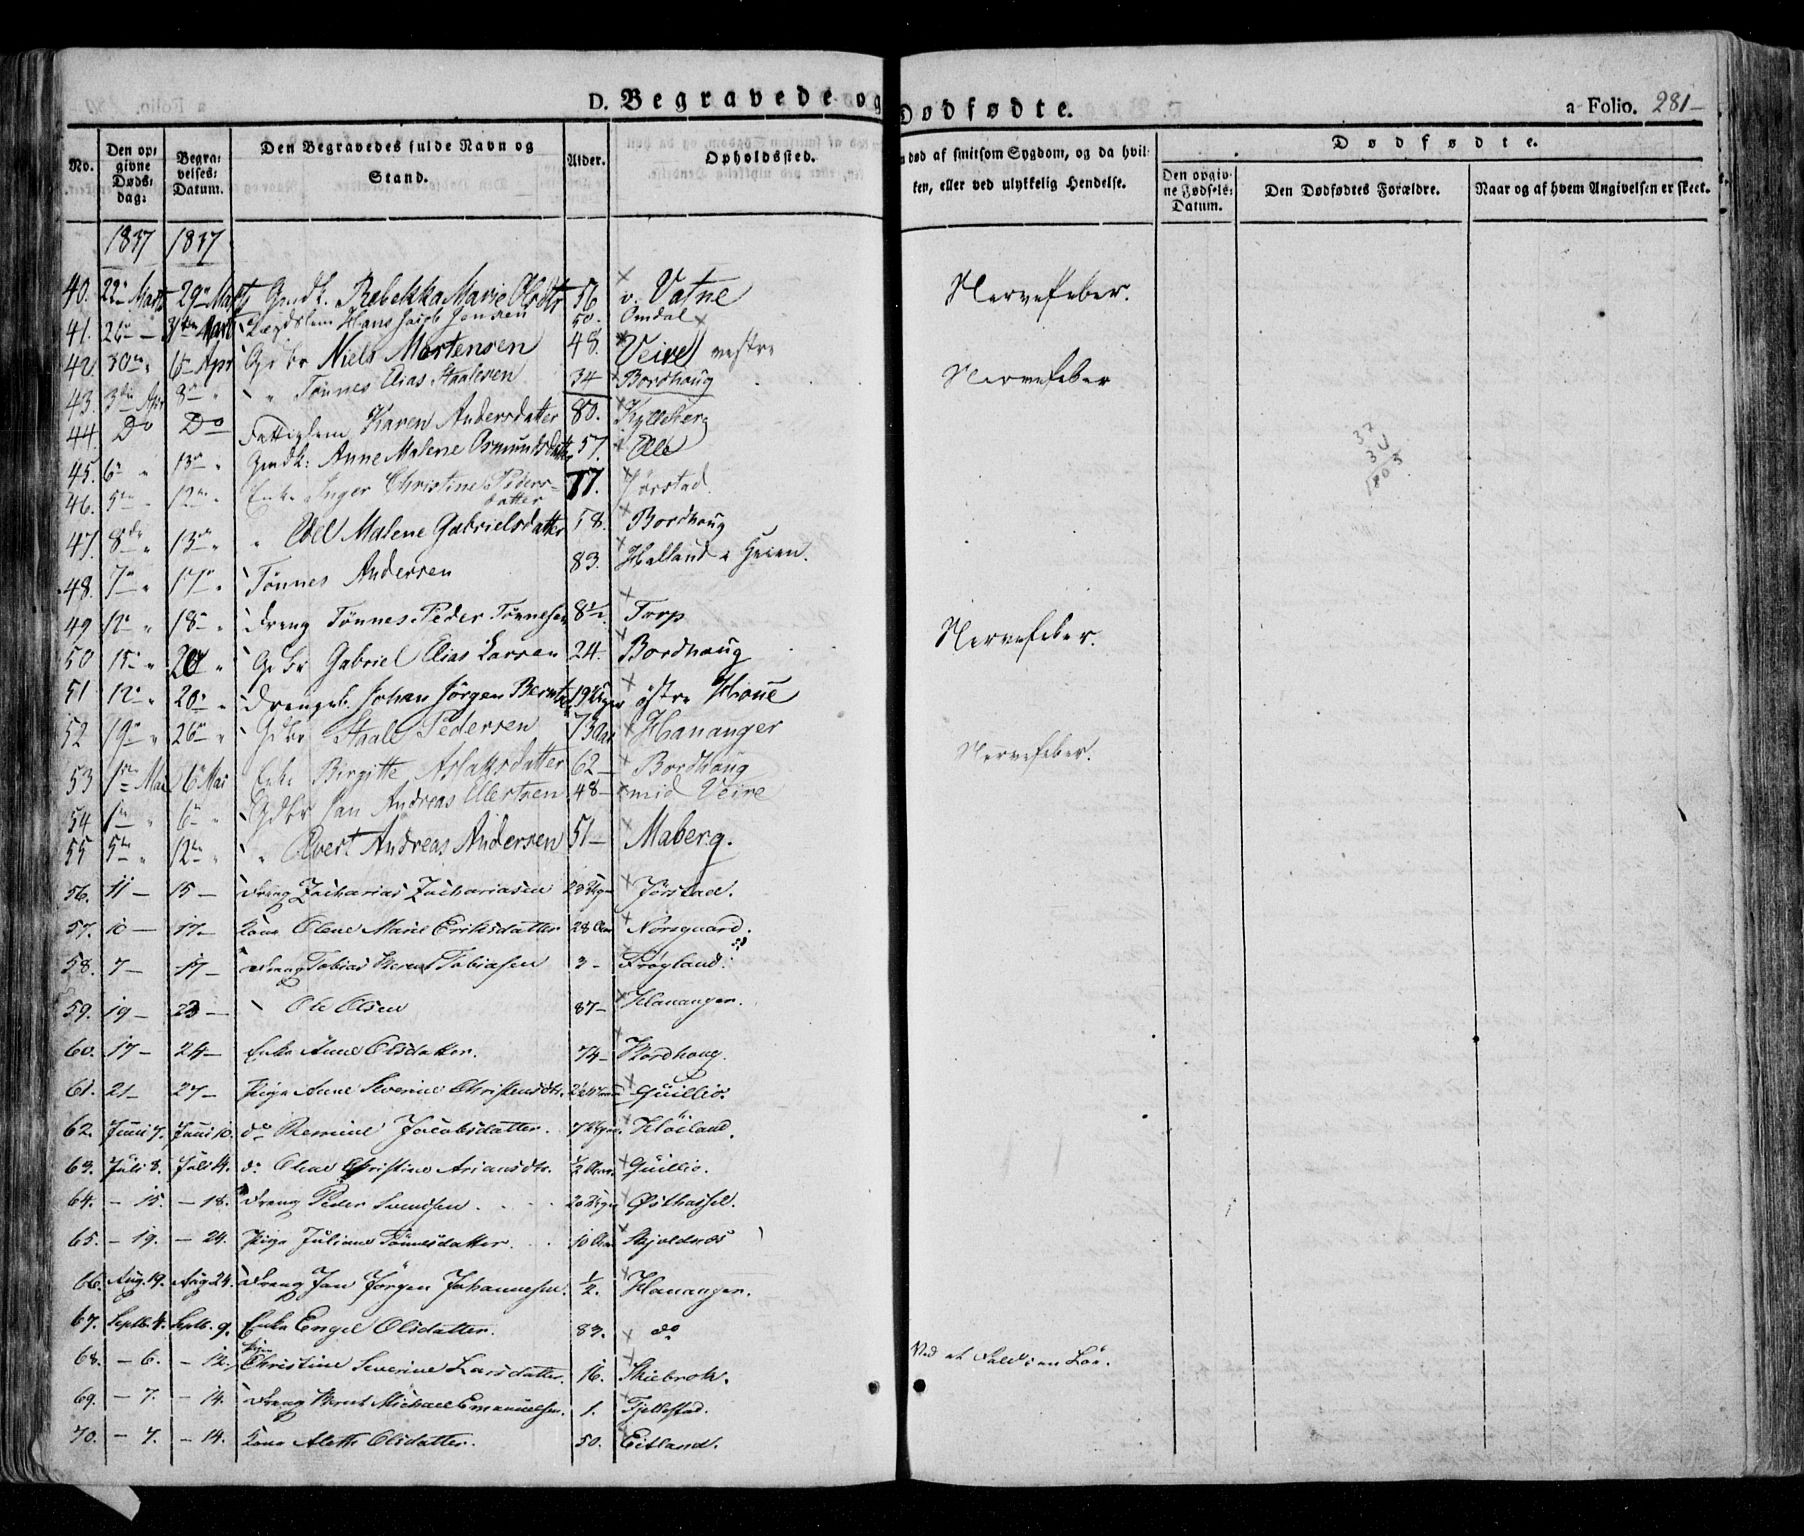 D. Begravede og Dødfødte. a Folio. 281-
No. Den opgivne Dødsdag: Begravelses-Datum. Den Begravedes fulde Navn og Stand. Alder. Opholdssted. død af smitsom Sygdom, og da hvilken, eller ved ulykkelig Hendelse. Dødfødte. Den opgivne Fødsels-Datum. Den Dødfødtes Forældre. Naar og af hvem Angivelsen er skeet.
1837 1837
40. 22 Marts 29 Marts Gmdk. Rebekka Marie Olsdtr 56 v. Vatne Nervefeber.
41. 26 — 31 Marts Lægdslem Hans Jacob Jensen 50. Omdal
42. 30 " 6 Apr Gdbr Niels Mortensen 48. Veire vestre
43. 3 Apr 8 " " Tønnes Elias Staalesen 34 Bordhoug Nervefeber
44. Do Do Fattiglem Karen Andersdatter 80. Kylleberg
45. 6 " 13 " Gmdk: Anne Malene Osmundsdatter 57. Olle
46. 5 " 12 " Enke Inger Christine Pedersdatter 77. Jørstad.
47. 8 " 13 " " Edel Malene Gabrielsdatter 58. Bordhoug
48. 7 " 17 " Tønnes Andersen 83. Halland i Heien.
49 12 " 18 " Dreng Tønnes Peder Tønnesen 8½. Torp
50 15 " 20 " Gdbr Gabriel Elias Larsen 24. Bordhoug Nervefeber.
51 12 " 20 " Drengeb. Johan Jørgen Berntsen 19 Uger østre Hoüe
52 19 " 26 " Gdbr Staale Pedersen 73 Aar Hananger
53 1 Mai 6 Mai Enke Birgitte Aslaksdatter 62 — Bordhoug Nervefeber.
54 1 " 6 " Gdbr Jan Andreas Ellertsen 48 — mid Veire
55 5 " 12 " " Evert Andreas Andersen 51 — Maberg.
56. 11 — 15 — Dreng Zacharias Zachariasen 23 Uger Jørstad.
57. 10 — 17 — Kone Olene Marie Eriksdatter 28 Aar Norsguard.
58. 7 — 17 — Dreng Tobias Bernt Tobiasen 3 — Frøgland.
59. 19 — 23 — Ole Olsen 87 — Hananger.
60. 17 — 24 — Enke Anne Olsdatter. 74 — Bordhoug.
61. 21 — 27 — Pige Anne Severine Christensdtr. Quillio.
62. Juni 7. Juni 10. do Bernine Jacobsdatter. 7 Uger Kløiland.
63. Juli 3. Juli 4. do Olene Christine Ariansdtr. ½ Aar Quillio.
64. — 15. — 18. Dreng Peder Svendsen 20 Uger Østhassel.
65. — 19. — 24. Pige Juliane Tønnesdatter. 10 Aar Skjoldnæs
66. Aug. 19. Aug 24. Dreng Jan Jørgen Johannesen. ½. Hananger.
67. Septb. 4. Septb. 9. Enke Engel Olsdatter. 83. do
68. — 6. — 12. Pige Christine Severine Larsdatter. 16. Skiebrok. Ved et Fald i en Lae.
69. — 7. — 14. Dreng Bernt Michael Emanuelsen. 1. Fjellestad.
70. — 7. — 14. Kone Aleth Olsdatter. 50. Eitland.